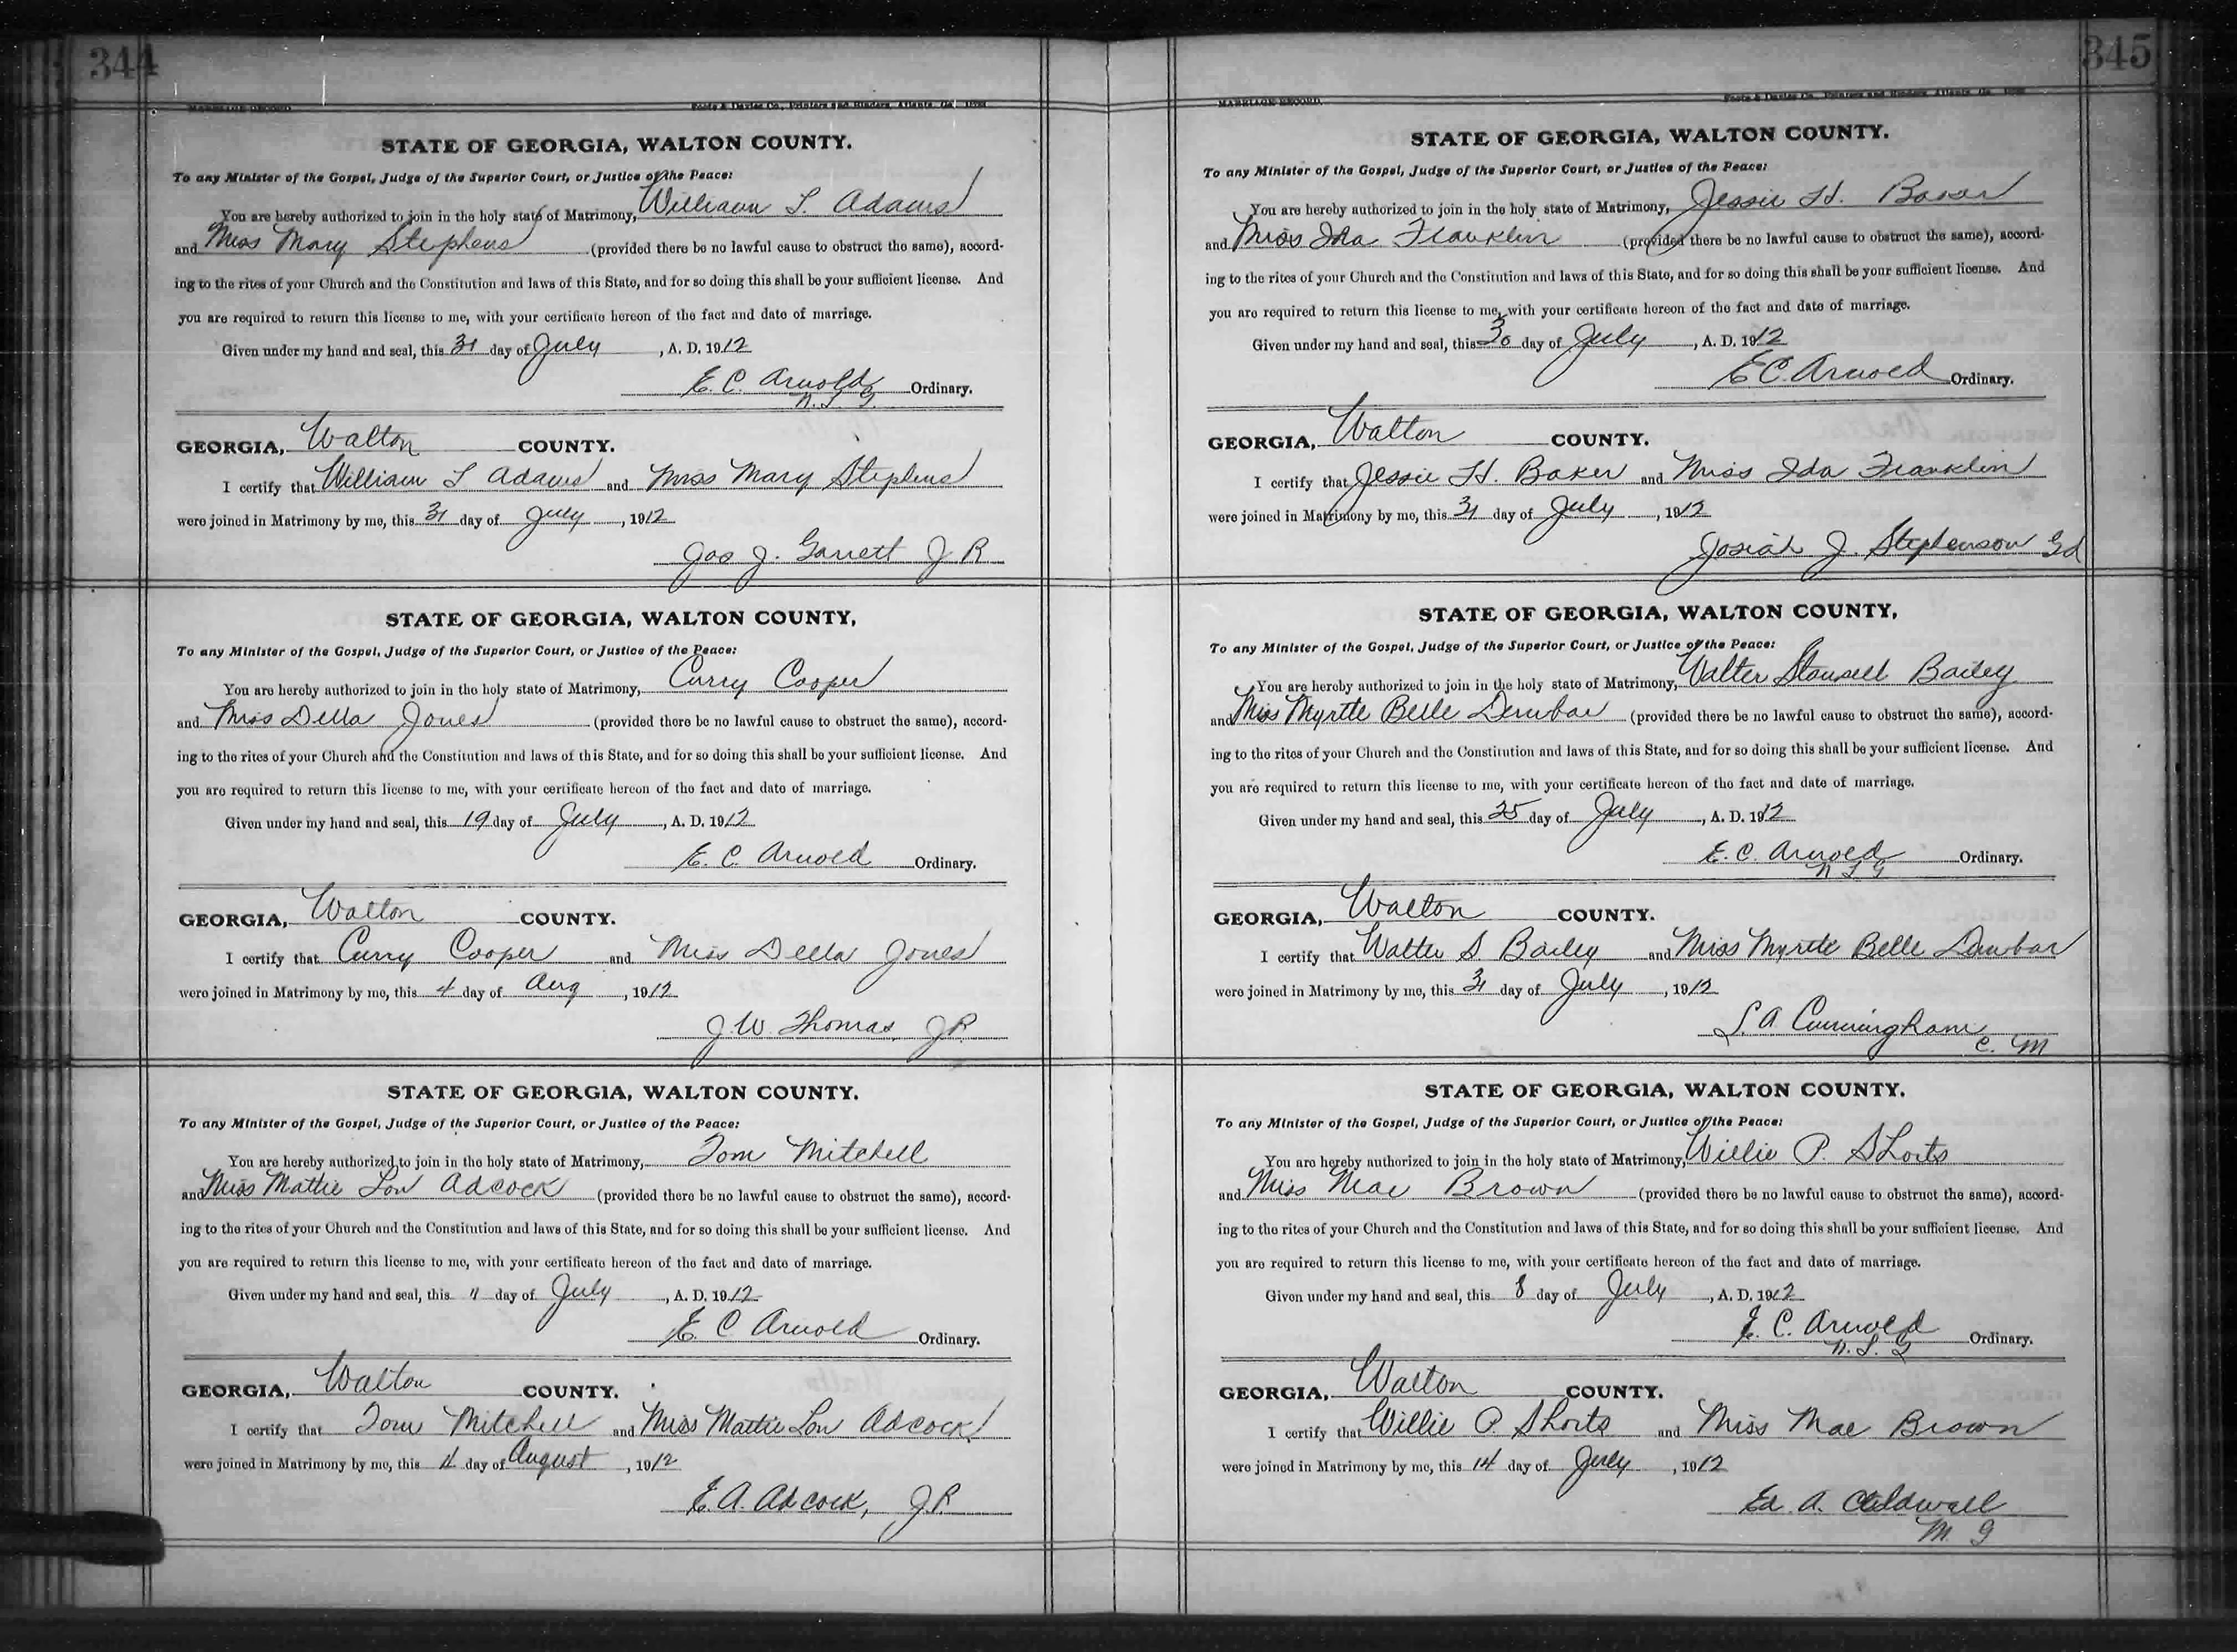 344
MARRIAGE RECORD
Foote & Davies Co., Printers and Binders, Atlanta, Ga.
STATE OF GEORGIA, WALTON COUNTY.
To any Minister of the Gospel, Judge of the Superior Court, or Justice of the Peace:
You are hereby authorized to join in the holy state of Matrimony, William L. Adams
and Miss Mary Stephens (provided there be no lawful cause to obstruct the same), accord-
ing to the rites of your Church and the Constitution and laws of this State, and for so doing this shall be your sufficient license. And
you are required to return this license to me, with your certificate hereon of the fact and date of marriage.
Given under my hand and seal, this 31 day of July, A. D. 1912
E. C. Arnold Ordinary.
GEORGIA, Walton COUNTY.
I certify that William L Adams and Miss Mary Stephens
were joined in Matrimony by me, this 31 day of July, 1912
Jas J. Garrett J. P.
STATE OF GEORGIA, WALTON COUNTY,
To any Minister of the Gospel, Judge of the Superior Court, or Justice of the Peace:
You are hereby authorized to join in the holy state of Matrimony, Curry Cooper
and Miss Della Jones (provided there be no lawful cause to obstruct the same), accord-
ing to the rites of your Church and the Constitution and laws of this State, and for so doing this shall be your sufficient license. And
you are required to return this license to me, with your certificate hereon of the fact and date of marriage.
Given under my hand and seal, this 19 day of July, A. D. 1912
E. C. Arnold Ordinary.
GEORGIA, Walton COUNTY.
I certify that Curry Cooper and Miss Della Jones
were joined in Matrimony by me, this 4 day of Aug, 1912
J. W. Thomas, J.P.
STATE OF GEORGIA, WALTON COUNTY.
To any Minister of the Gospel, Judge of the Superior Court, or Justice of the Peace:
You are hereby authorized to join in the holy state of Matrimony, Tom Mitchell
and Miss Mattie Lou Adcock (provided there be no lawful cause to obstruct the same), accord-
ing to the rites of your Church and the Constitution and laws of this State, and for so doing this shall be your sufficient license. And
you are required to return this license to me, with your certificate hereon of the fact and date of marriage.
Given under my hand and seal, this 11 day of July, A. D. 1912
E. C Arnold Ordinary.
GEORGIA, Walton COUNTY.
I certify that Tom Mitchell and Miss Mattie Lou Adcock
were joined in Matrimony by me, this day of August, 1912
E. A. Adcock, J.P.
345
MARRIAGE RECORD
Foote & Davies Co., Printers and Binders, Atlanta, Ga.
STATE OF GEORGIA, WALTON COUNTY.
To any Minister of the Gospel, Judge of the Superior Court, or Justice of the Peace:
You are hereby authorized to join in the holy state of Matrimony, Jessie H. Baker
and Miss Ida Franklin (provided there be no lawful cause to obstruct the same), accord-
ing to the rites of your Church and the Constitution and laws of this State, and for so doing this shall be your sufficient license. And
you are required to return this license to me, with your certificate hereon of the fact and date of marriage.
Given under my hand and seal, this 30 day of July, A. D. 1912
E C. Arnold Ordinary.
GEORGIA, Walton COUNTY.
I certify that Jessie H. Baker and Miss Ida Franklin
were joined in Matrimony by me, this 31 day of July, 1912
Josiah J. Stephenson
STATE OF GEORGIA, WALTON COUNTY,
To any Minister of the Gospel, Judge of the Superior Court, or Justice of the Peace:
You are hereby authorized to join in the holy state of Matrimony, Walter Stansell Bailey
and Miss Myrtle Belle Dunbar (provided there be no lawful cause to obstruct the same), accord-
ing to the rites of your Church and the Constitution and laws of this State, and for so doing this shall be your sufficient license. And
you are required to return this license to me, with your certificate hereon of the fact and date of marriage.
Given under my hand and seal, this 25 day of July, A. D. 1912
E. C. Arnold Ordinary.
GEORGIA, Walton COUNTY.
I certify that Walter S Bailey and Miss Myrtle Belle Dunbar
were joined in Matrimony by me, this 31 day of July, 1912
S. A Cunningham
C. M
STATE OF GEORGIA, WALTON COUNTY.
To any Minister of the Gospel, Judge of the Superior Court, or Justice of the Peace:
You are hereby authorized to join in the holy state of Matrimony, Willie P. Shorts
and Miss Mae Brown (provided there be no lawful cause to obstruct the same), accord-
ing to the rites of your Church and the Constitution and laws of this State, and for so doing this shall be your sufficient license. And
you are required to return this license to me, with your certificate hereon of the fact and date of marriage.
Given under my hand and seal, this 8 day of July, A. D. 1912
E. C. Arnold Ordinary.
GEORGIA, Walton COUNTY.
I certify that Willie P. Shorts and Miss Mae Brown
were joined in Matrimony by me, this 14 day of July, 1912
Ed. A. Caldwell
M. G